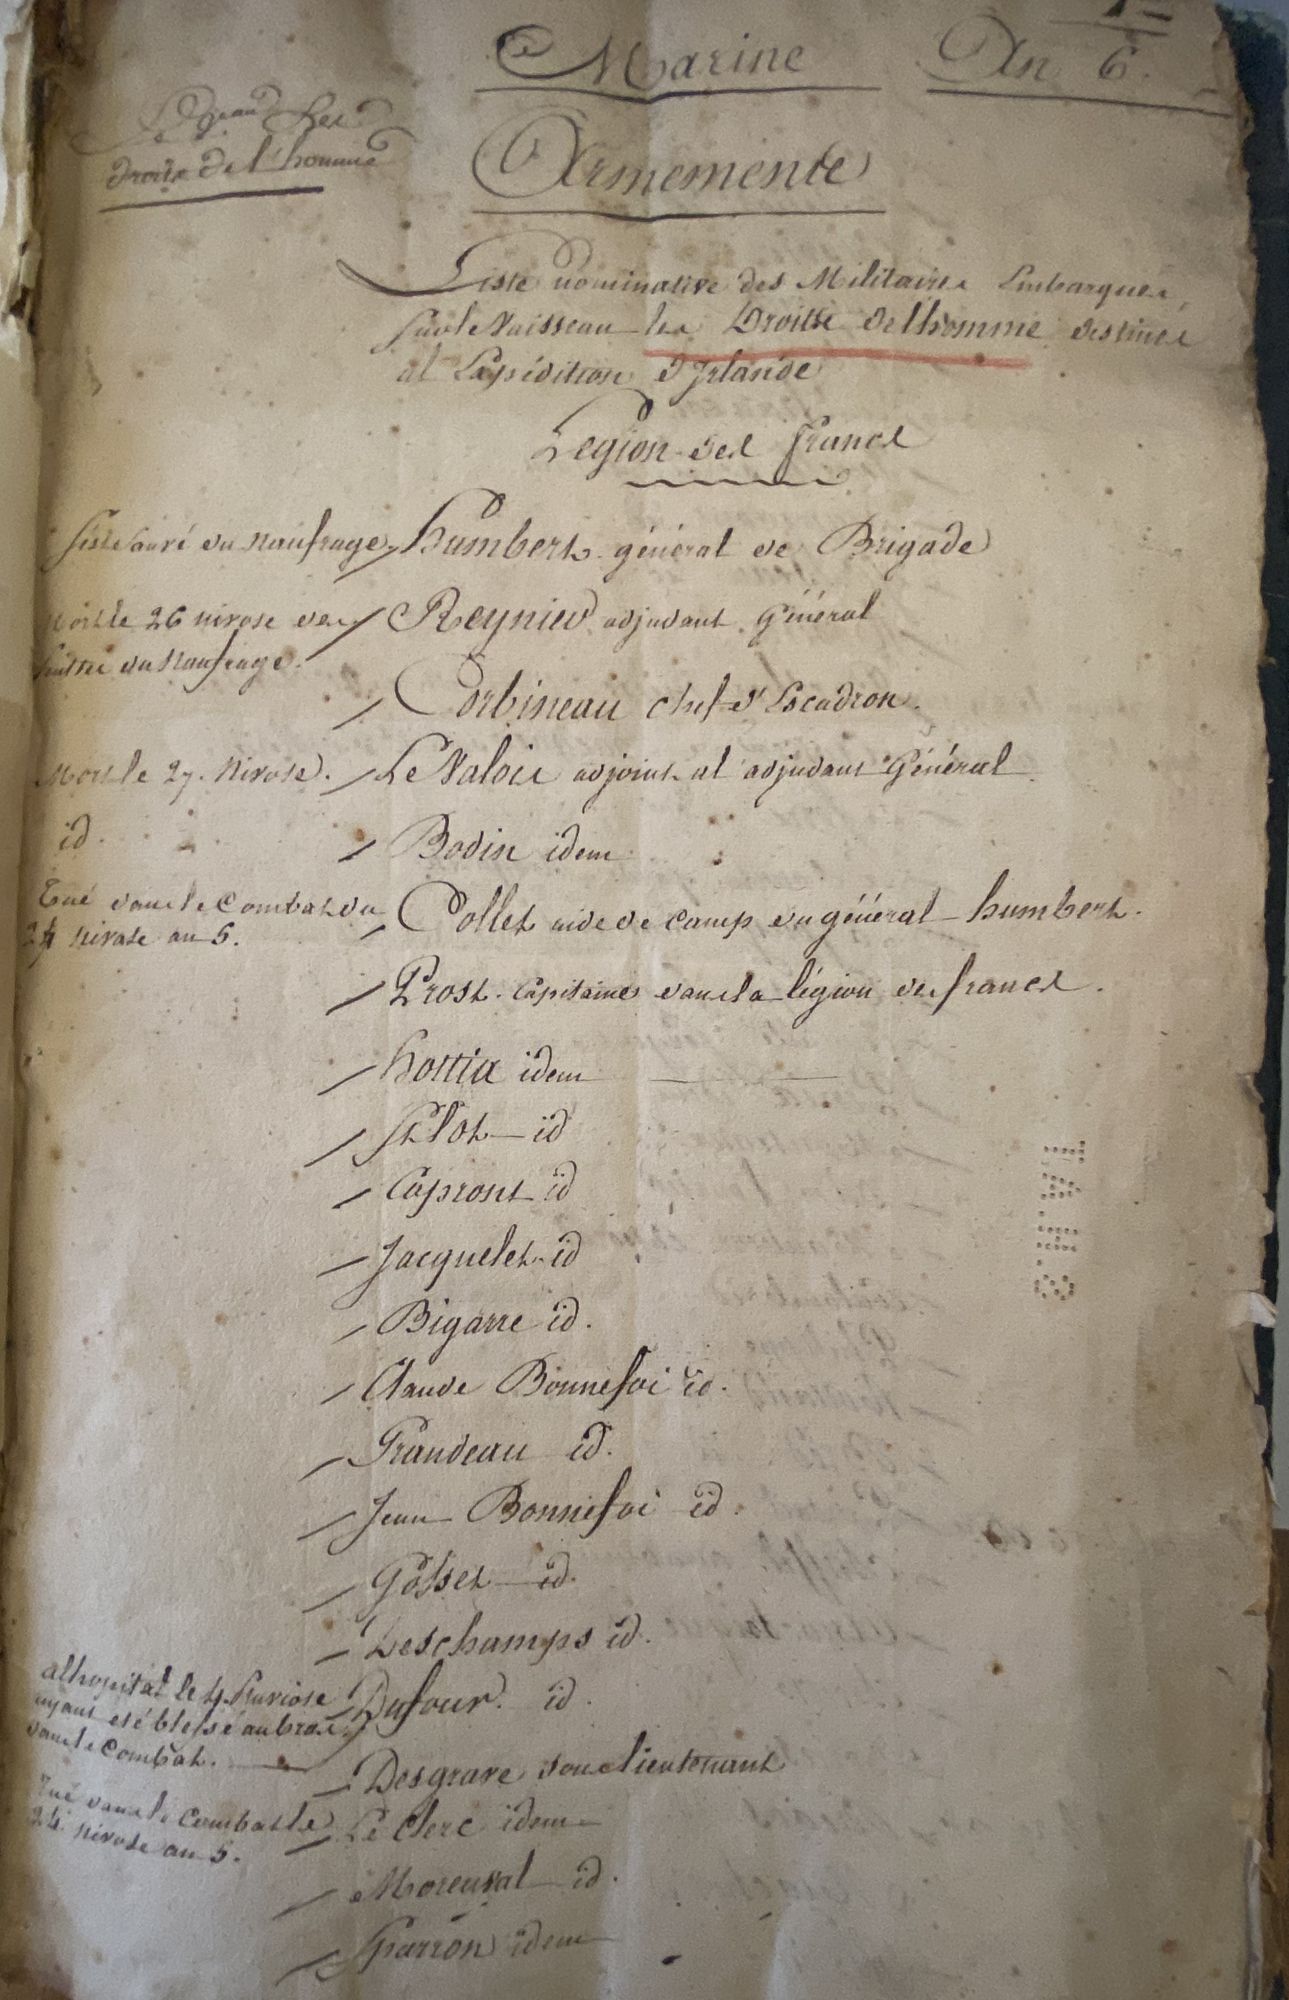 Marine
An 6.
Vaisseau Les
droits de l'homme
Armements
Liste nominative des Militaires Embarqués
sur le Vaisseau les Droits de l'homme destinés
a l'Expédition d'Irlande
Legion des francs
s'est sauvé du Naufrage. / humbert général de Brigade
Mort le 26 nivose des / Reynier adjudant Général
suittes du Naufrage.
/ Corbineau chef d'Escadron.
Mort le 27. Nivose. / Le Valois adjoint al adjudant Général
id. / Bodin idem
Tué dans le Combat du / Collet aide de camp du général humbert.
24 nivose an 5.
/ Prost. Capitaine dans la légion des francs.
/ hottia idem
/ id
/ Capront id
/ Jacquelet id
/ Bigarre id.
/ Claude Bonnefoi id.
/ Grandeau id.
/ Jean Bonnefoi id.
/ Gosset id.
/ Deschamps id.
al hopital le 4 Pluviose / Dufour. id.
ayant eté blessé au bras
dans le Combat.
/ Desgrave sous lieutenant
Tué dans le Combat le / Le Clerc idem
24. nivose an 5.
/ id.
/ idem